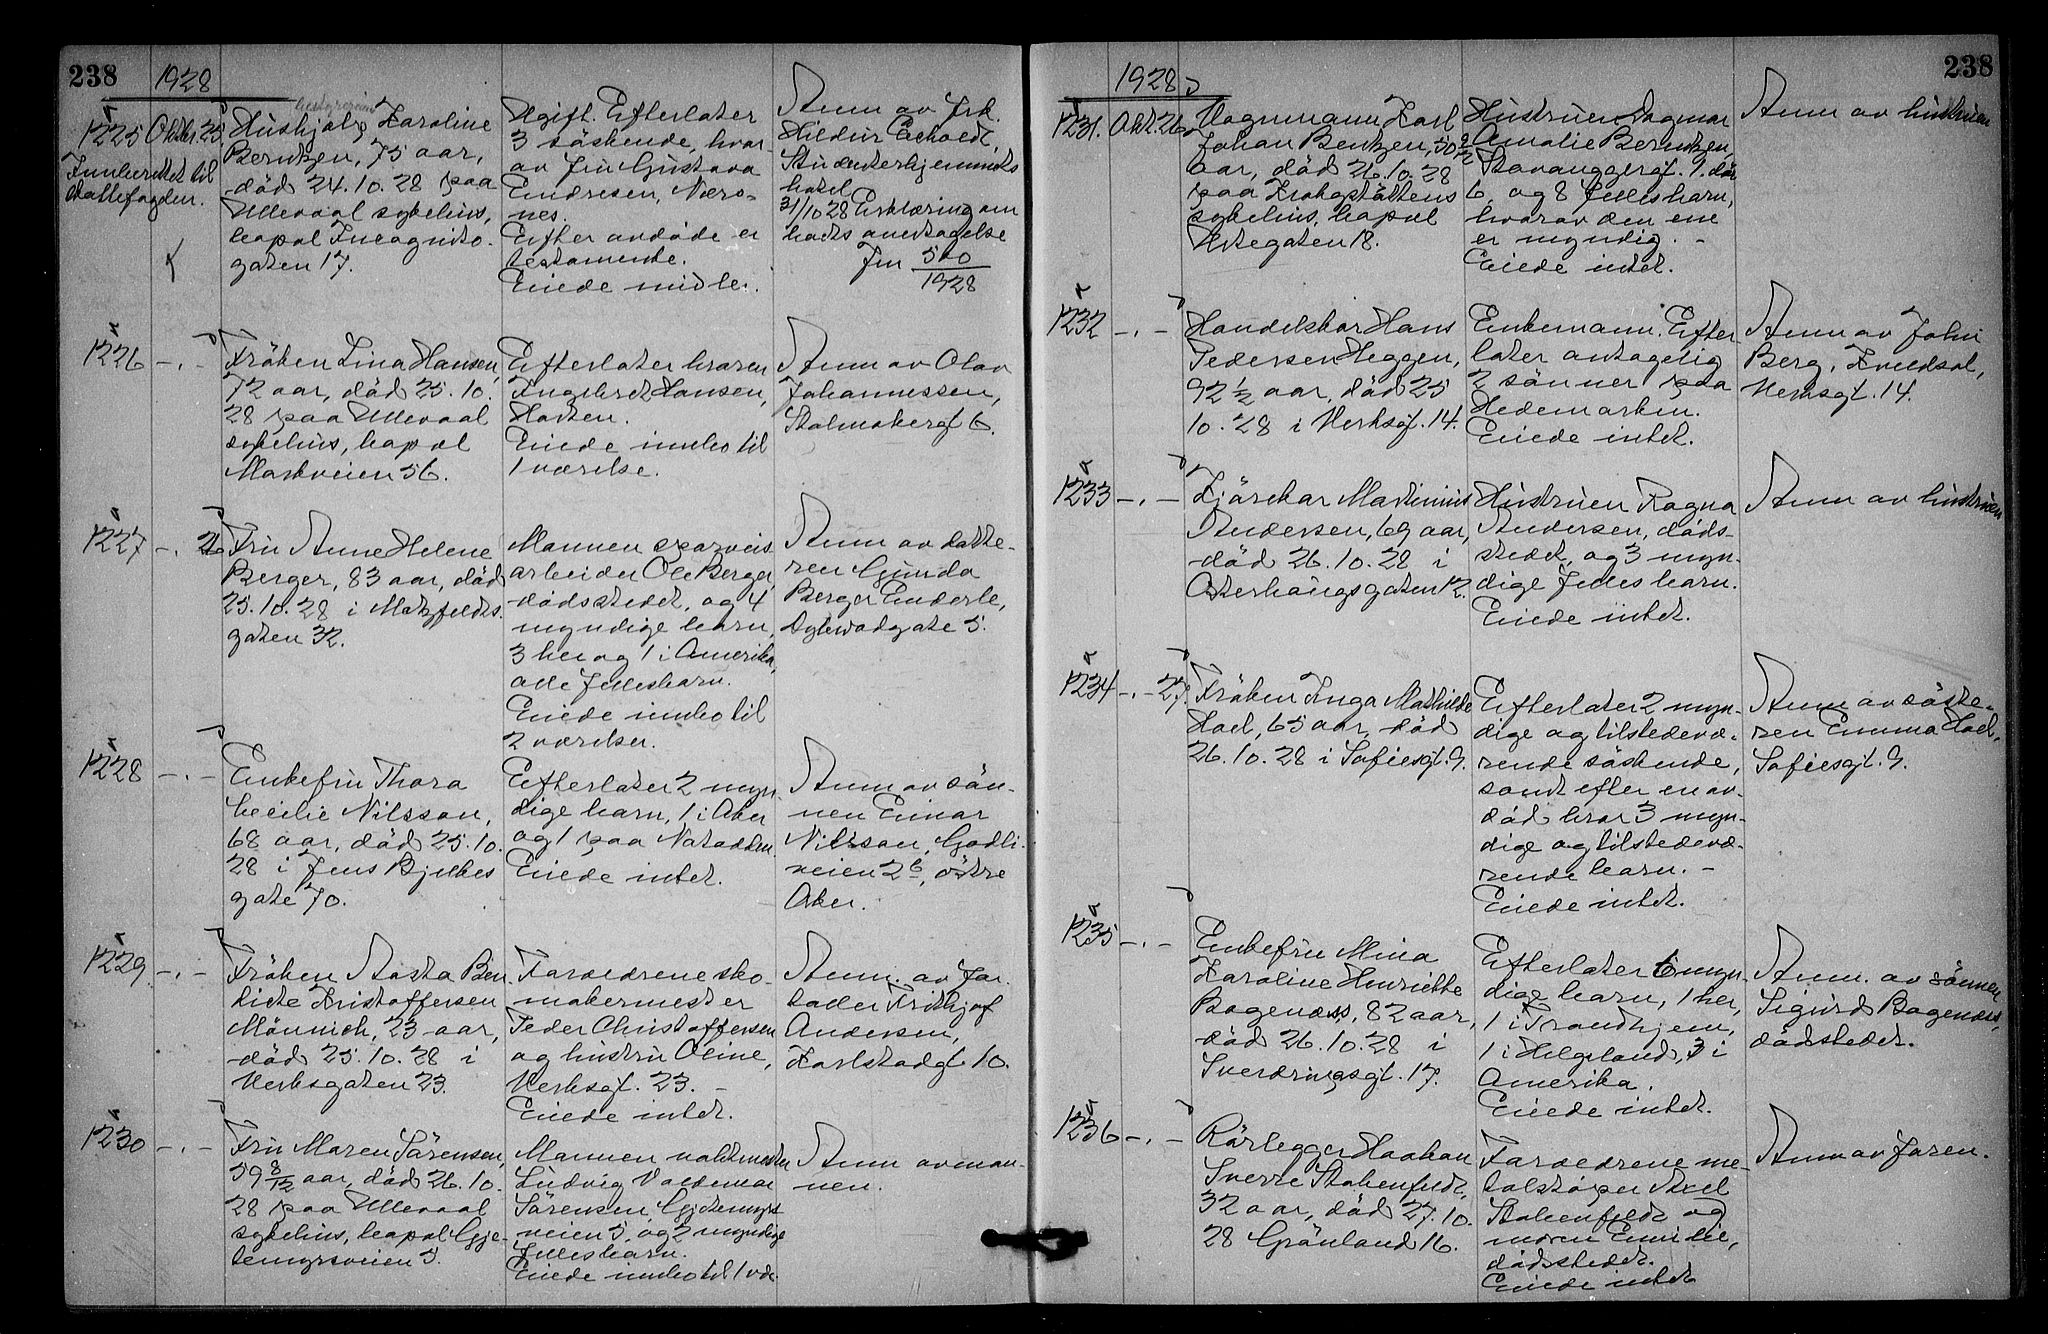 238
1928
1225
Oktbr. 25.
Innberettet til
skattefogden.
Hushjelp Karoline
Berntzen, 75 aar,
död 24.10.28 paa
Ullevaal sykehus,
bopæl Incognito-
gaten 17.
Ugift. Efterlater
3 söskende, hvor-
av fru Gustava
Endresen, Næro-
nes.
Efter avdöde er
testamente.
Eiede midler.
Anm av frk.
Hildur
Studenterhjemmets
hotel
31/10 28 Erklæring om
bosts overtagelse
Jnr 500
1928
1226 -.-
Fröken Lina Hansen,
72 aar, död 25.10.
28 paa Ullevaal
sykehus, bopæl
Markveien 56.
Efterlater broren
Ingebret Hansen,
Horten.
Eiede innbo til
1 værelse.
Anm av Olav
Johannessen,
Stolmakergt 6.
1227 -.- 26
Fru Anne Helene
Berger, 83 aar, död
25.10.28 i Motzfeldts.
gaten 32.
Mannen sporveis
arbeider Ole Berger,
dödsstedet, og 4
myndige barn,
3 her og 1 i Amerika,
alle fellesbarn.
Eiede innbo til
2 værelser.
Anm av datte-
ren Gunda
Berger Enderle,
Dybwadgate 5.
1228 -.-
Enkefru Thora
Cecilie Nilsson,
68 aar, död 25.10.
28 i Jens Bjelkes
gate 70.
Efterlater 2 myn
dige barn, 1 i Aker
og 1 paa Notodden.
Eiede intet.
Anm av sön-
nen Einar
Nilsson, Godli-
veien 2 b, östre
Aker.
1229 -.-
Fröken Aasta Ben
dicte Kristoffersen
Mönnich, 23 aar,
död 25.10.28 i
Verksgaten 23.
Foreldrene sko-
makermester
Peder Christoffersen
og hustru Oline,
Verksgt. 23. -
Eiede intet.
Anm. av for.
stader Frithjof
Andersen,
Karlstadgt 10.
1230 -.-
Fru Maren Sörensen,
59 8/12 aar, död 26.10.
28 paa Ullevaal
sykehus, bopæl Gje-
temyrsveien 5.
Mannen vaktmester
Ludvig Valdemar
Sörensen Gjetemyrs
veien 5, og 2 myndige
fellesbarn.
Eiede innbo til 1 vær.
Anm av man-
nen.
238
1928
1231. Okt. 26
Vognmann Karl
Johan Bentzen, 50 9/12
aar, död 26.10.28
paa Krohgstöttens
sykehus, bopæl
Urtegaten 18.
Hustruen Dagmar
Amalie Berntzen,
Stavangergt. 1. dör
6, og 8 fellesbarn,
hvorav den ene
er myndig. -
Eiede intet.
Anm av hustruen
1232 -.-
Handelskar Hans
Pedersen Heggen,
92 1/2 aar, död 25
10.28 i Verksgt. 14.
Enkemann. Efter
later antagelig
2 sönner paa
Hedemarken.
Eiede intet.
Anm av John
Berg, Kveldsol,
Verksgt. 14.
1233 -.-
Kjörekar Martinius
Andersen, 69 aar,
död 26.10.28 i
Osterhausgaten 12.
Hustruen Ragna
Andersen, döds-
stedet, og 3 myn-
dige fellesbarn.
Eiede intet.
Anm av hustruen
1234 -.- 27.
Fröken Inga Mathilde
Hoel, 65 aar, död
26.10.28 i Sofiesgt. 9.
Efterlater 2 myn-
dige og tilstedevæ-
rende söskende,
samt efter en av-
död bror 3 myn-
dige og tilstedevæ-
rende barn. -
Eiede intet.
Anm av söste-
ren Emma Hoel,
Sofiesgt. 9.
1235 -.-
Enkefru Mina
Karoline Henriette
Bogenæss, 82 aar,
död 26.10.28 i
Sverdrupsgt. 17.
Efterlater 6 myn-
dige barn, 1 her,
1 i Trondhjem,
1 i Helgeland, 3 i
Amerika.
Eiede intet.
Anm. av sönnen
Sigurd Bogenæss,
dödsstedet.
1236 -.-
Rörlegger Haakon
Sverre Stokenfeldt,
32 aar, död 27.10.
28 Grönland 16.
Foreldrene me-
talstöper Axel
Stokenfeldt og
moren Emilie,
dödsstedet.
Eiede intet
Anm av faren.